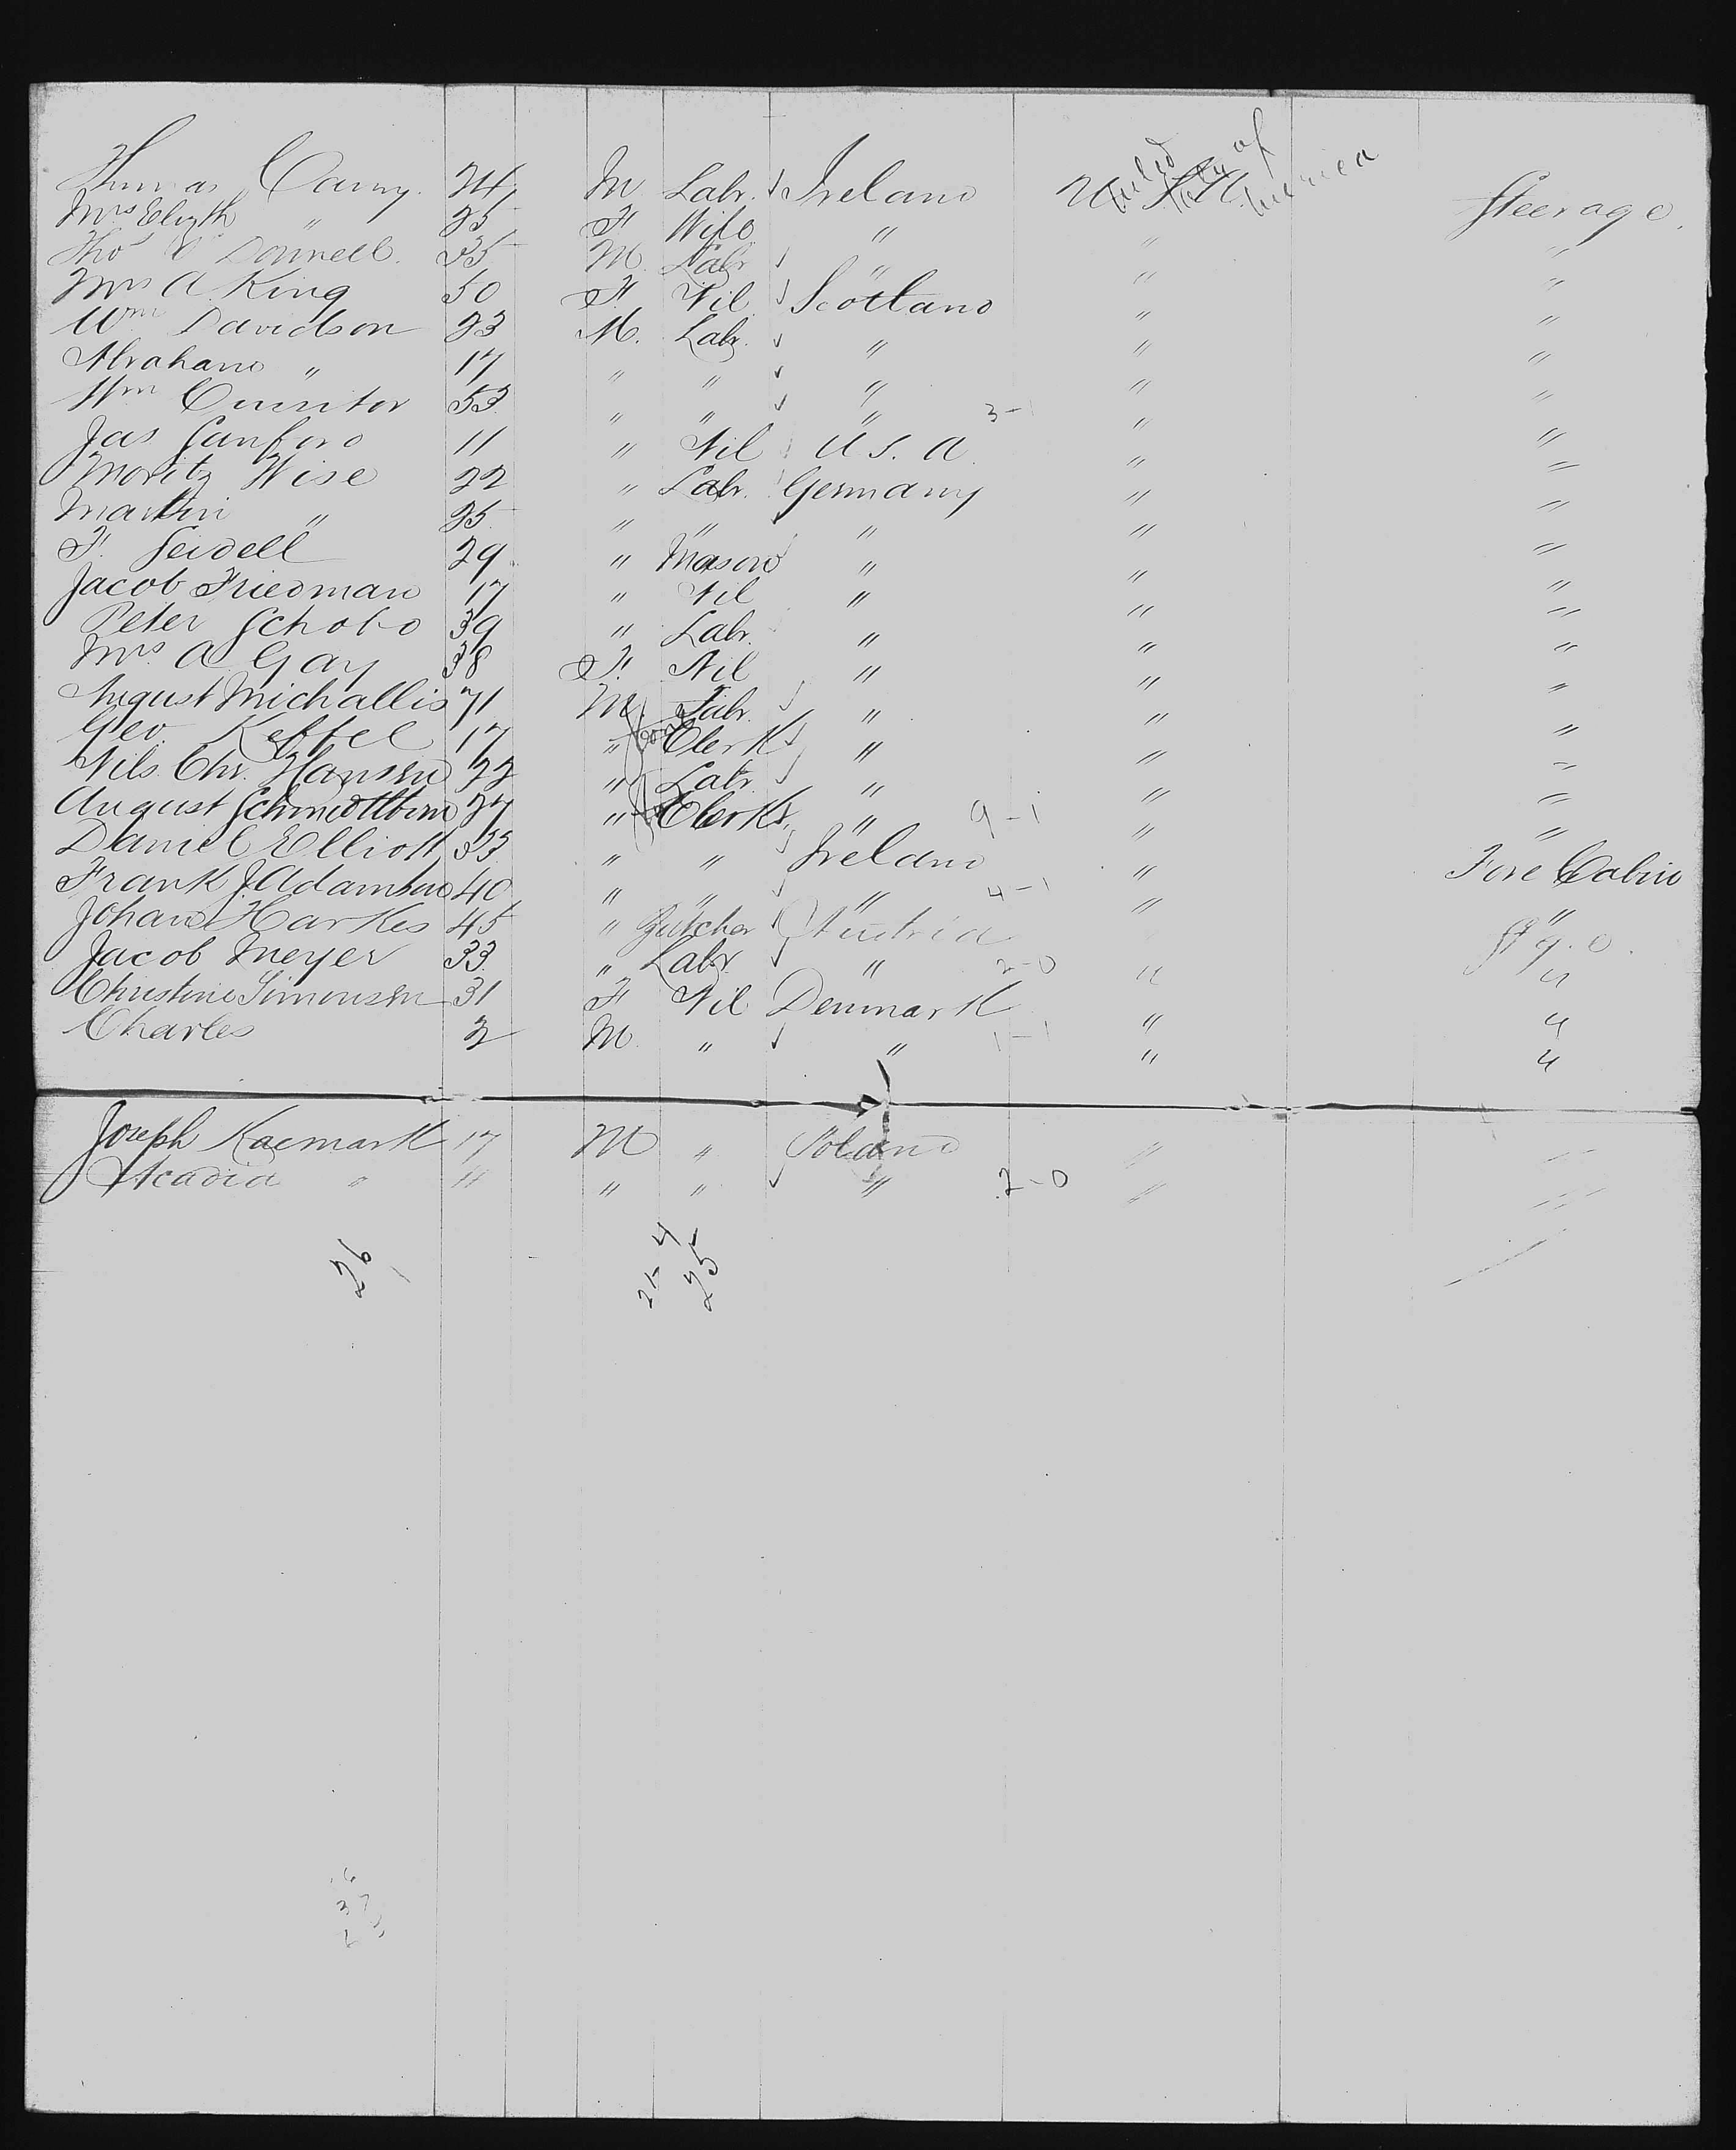 Thomas Carny. 24 M Labr. Ireland United States of America Steerage.
Mrs Elizth " 25 F Wife " " "
Thos O'Donnell. 35 M. Labr " " "
Mrs A. King 50 F. Nil Scotland " "
Wm Davidson 23 M. Labr. " " "
Abraham " 17 " " " " "
Wm Cunitor 53 " " " 3-1 " "
Jas Sanford 11 " Nil U.S.A. " "
Moritz Wise 22 " Labr. Germany " "
Martin " 25 " " " " "
F. Seidell 29 " Mason " " "
Jacob Friedman 17 " Nil " " "
Peter Schobo 39 " Labr. " " "
Mrs. A. Gay 38 F. Nil " " "
August Michallis 71 M. Labr. " " "
Geo. Keffel 17 " Clerk " " "
Nils Chr. Hansen 22 " Labr. " " "
August 27 " Clerk " 9-1 " "
Daniel Elliott 33 " " Ireland " Fore Cabin
Frank J. Adamson 40 " " " 4-1 " "
Johann Harkes 45 " Butcher Austria St'g.e.
Jacob Meyer 33 " Labr. " 2-0 " "
Christine Simonsen 31 F Nil Denmark " "
Charles 2 M. " " 1-1 " "
Joseph Kacmark 17 M " Poland " "
Acadia " 11 " " " 2-0 " "
26
21-4
25
37